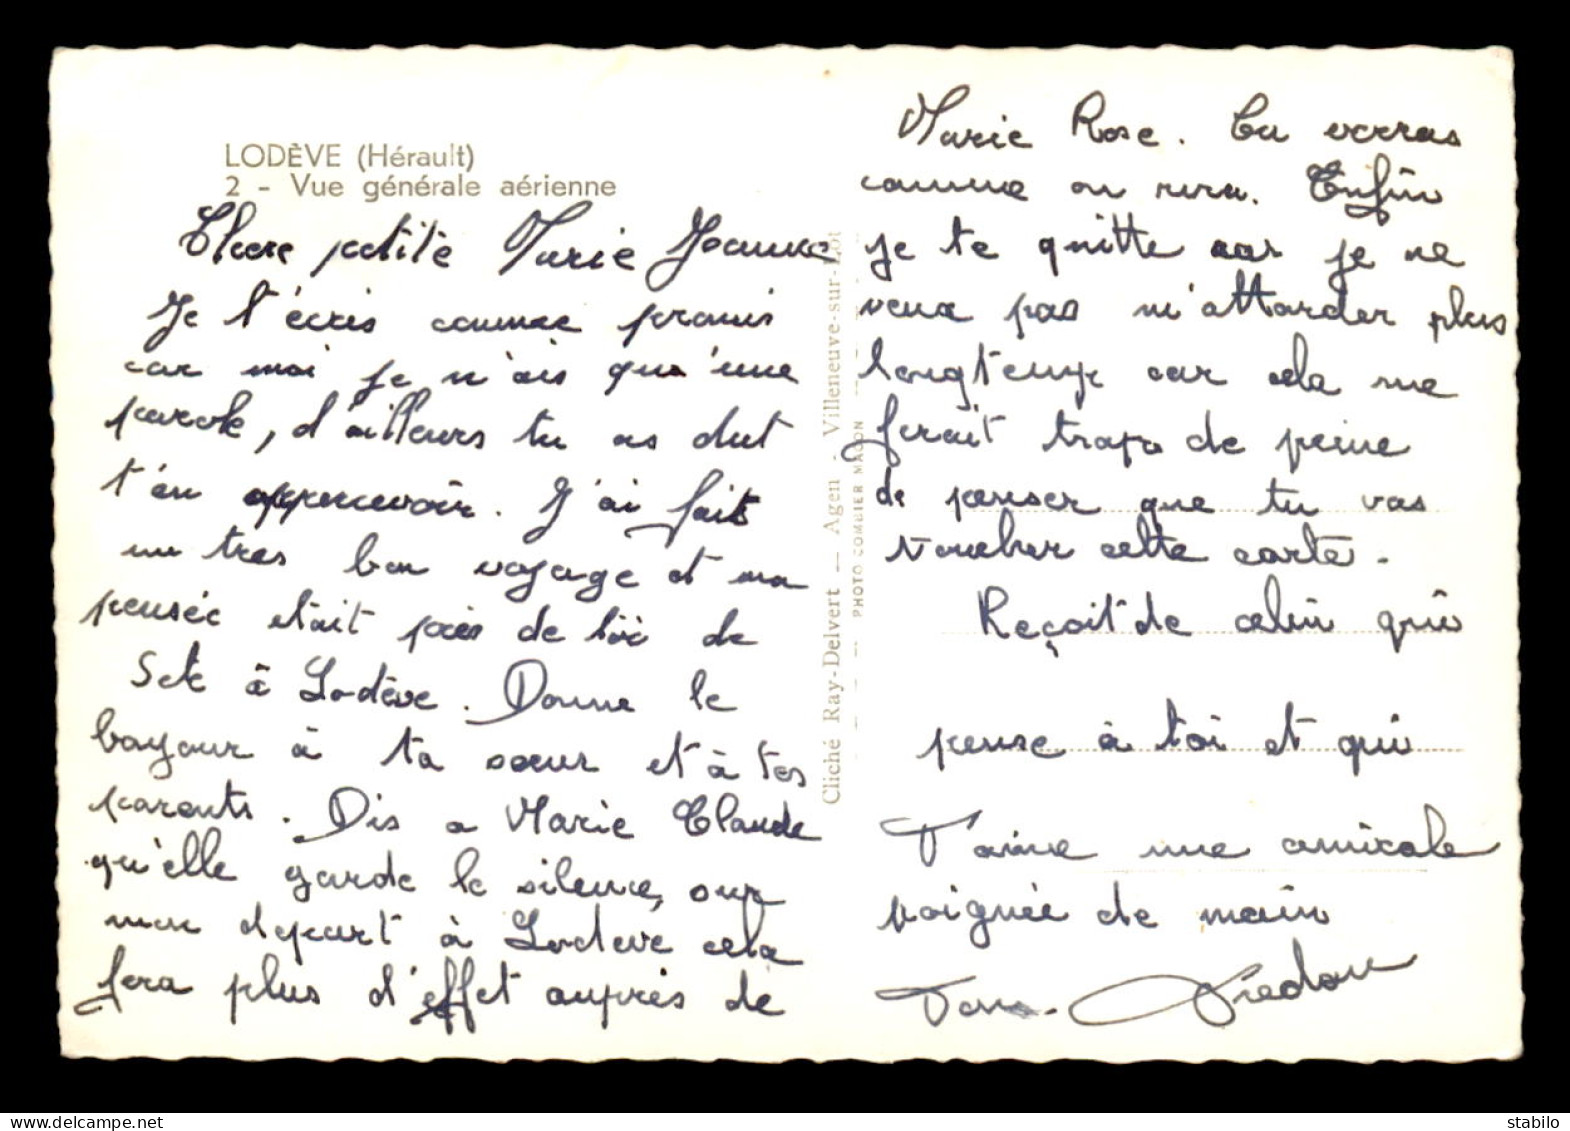 LODÈVE (Hérault)
2 - Vue générale aérienne
Chere petite Marie Jeanne
Je t'écris comme promis
car moi je n'ais qu'une
parole, d'ailleurs tu as dut
t'en appercevoir. J'ai fais
un tres bon voyage et ma
pensée etait près de toi de
Sete à Lodève. Donne le
bonjour à ta sœur et à tes
parents. Dis a Marie Claude
qu'elle garde le silence, sur
mon depart à Lodeve cela
fera plus d'effet auprès de
Cliché Ray-Delvert — Agen - Villeneuve-sur-Lot
PHOTO COMBIER MACON
Marie Rose. Tu verras
comme on rira. Enfin
je te quitte car je ne
veux pas m'attarder plus
longtemps car cela me
ferait trop de peine
de penser que tu vas
toucher cette carte.
Reçoit de celui qui
pense à toi et qui
t'aime une amicale
poignée de main
Ton
delcampe.net
stabilo